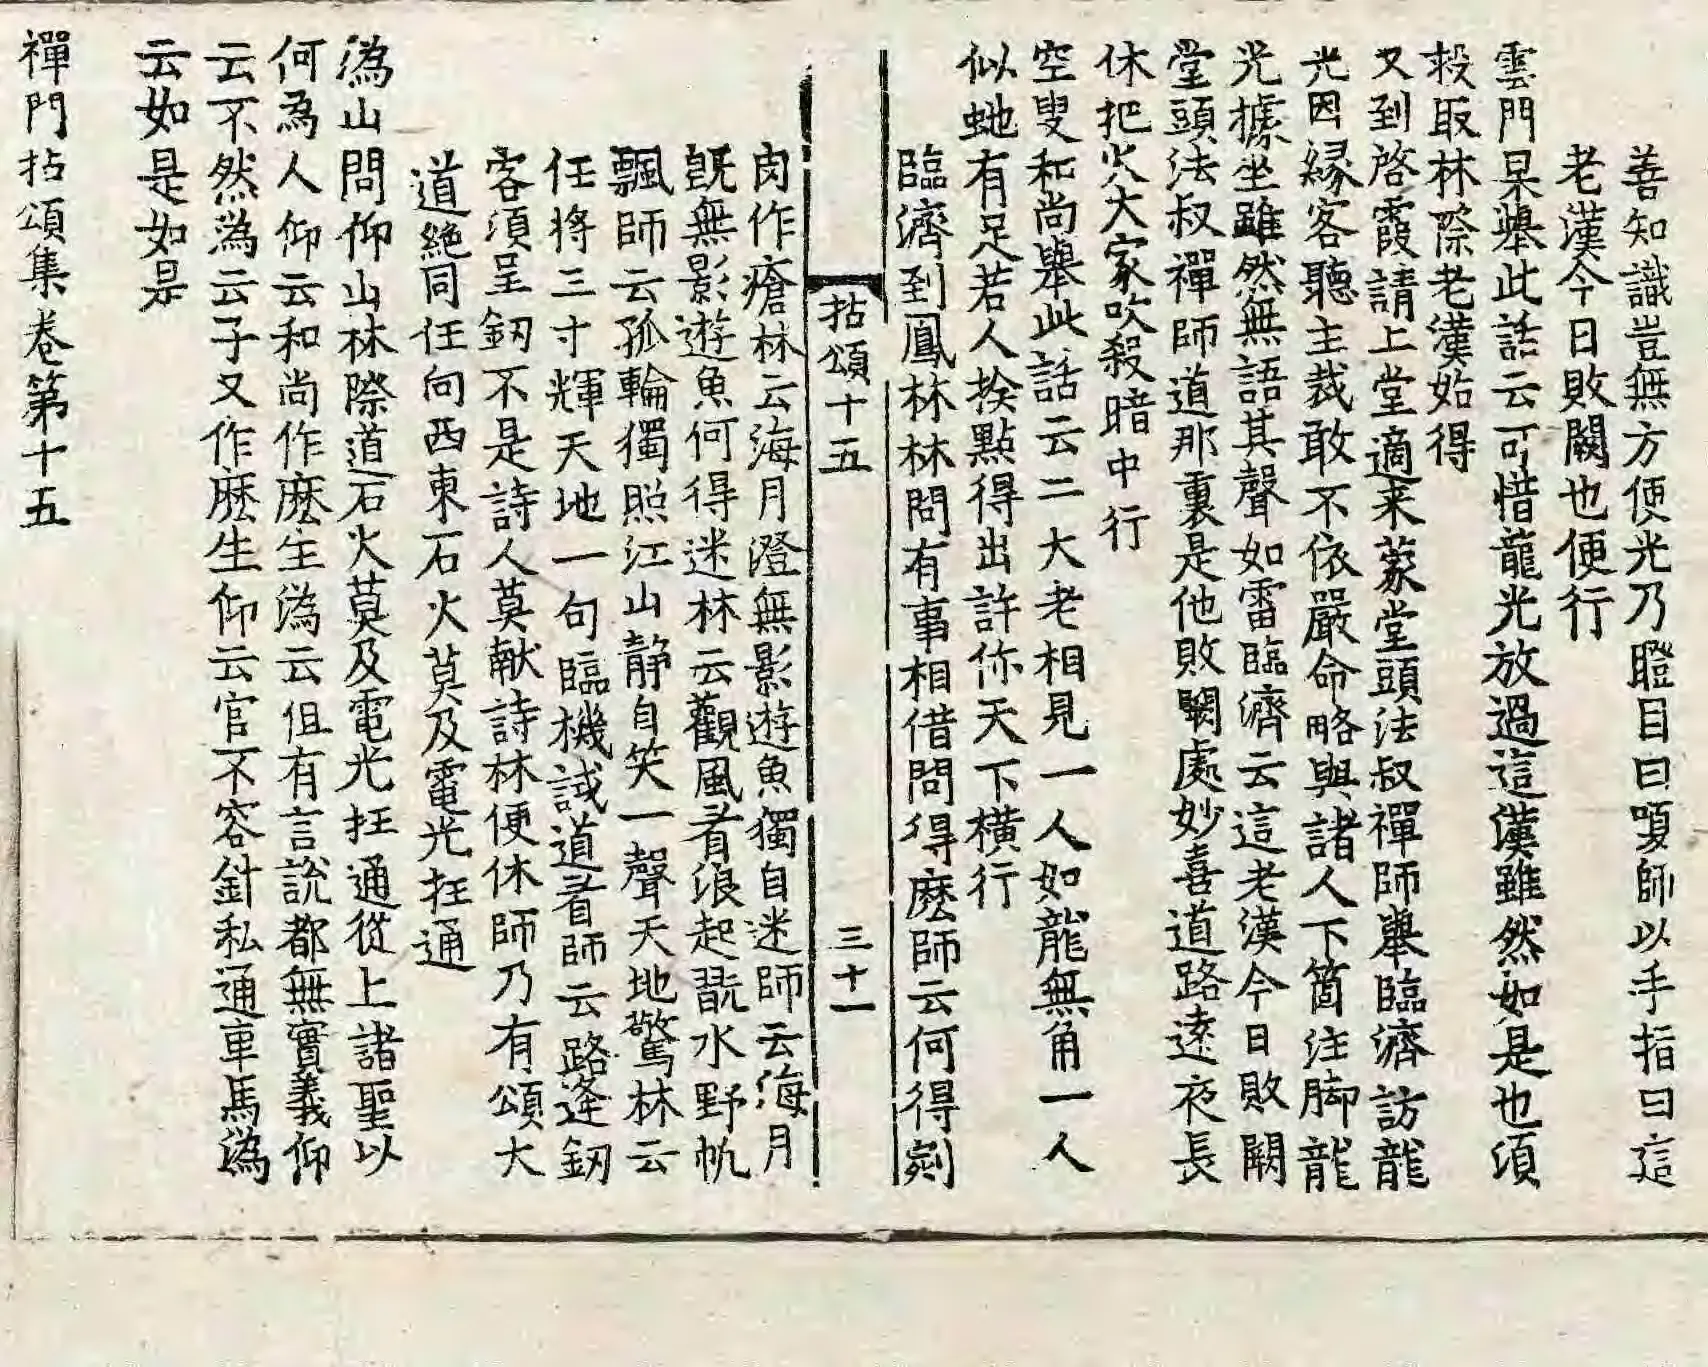 善知識豈無方便光乃瞪目曰嗄師以手指曰這
老漢今日敗闕也便行
雲門杲舉此話云可惜龍光放過這漢雖然如是也須
救取林際老漢始得
又到啓霞請上堂適来蒙堂頭法叔禪師舉臨濟訪龍
光因縁客聽主裁敢不依嚴命略與諸人下箇注脚龍
光據坐雖然無語其聲如雷臨濟云這老漢今日敗闕
堂頭法叔禪師道那裏是他敗闕處妙喜道路遠夜長
休把火大家吹殺暗中行
空叟和尚舉此話云二大老相見一人如龍無角一人
似虵有足若人揀點得出許你天下橫行
臨濟到鳳林林問有事相借問得麼師云何得剜
拈頌十五 三十一
肉作瘡林云海月澄無影遊魚獨自迷師云海月
旣無影遊魚何得迷林云觀風看浪起翫水野帆
飄師云孤輪獨照江山静自笑一聲天地驚林云
任将三寸輝天地一句臨機試道看師云路逢釼
客須呈釼不是詩人莫献詩林便休師乃有頌大
道絶同任向西東石火莫及電光拄通
溈山問仰山林際道石火莫及電光拄通從上諸聖以
何為人仰云和尚作麽生溈云但有言說都無實義仰
云不然溈云子又作麽生仰云官不容針私通車馬溈
云如是如是
禪門拈頌集卷第十五